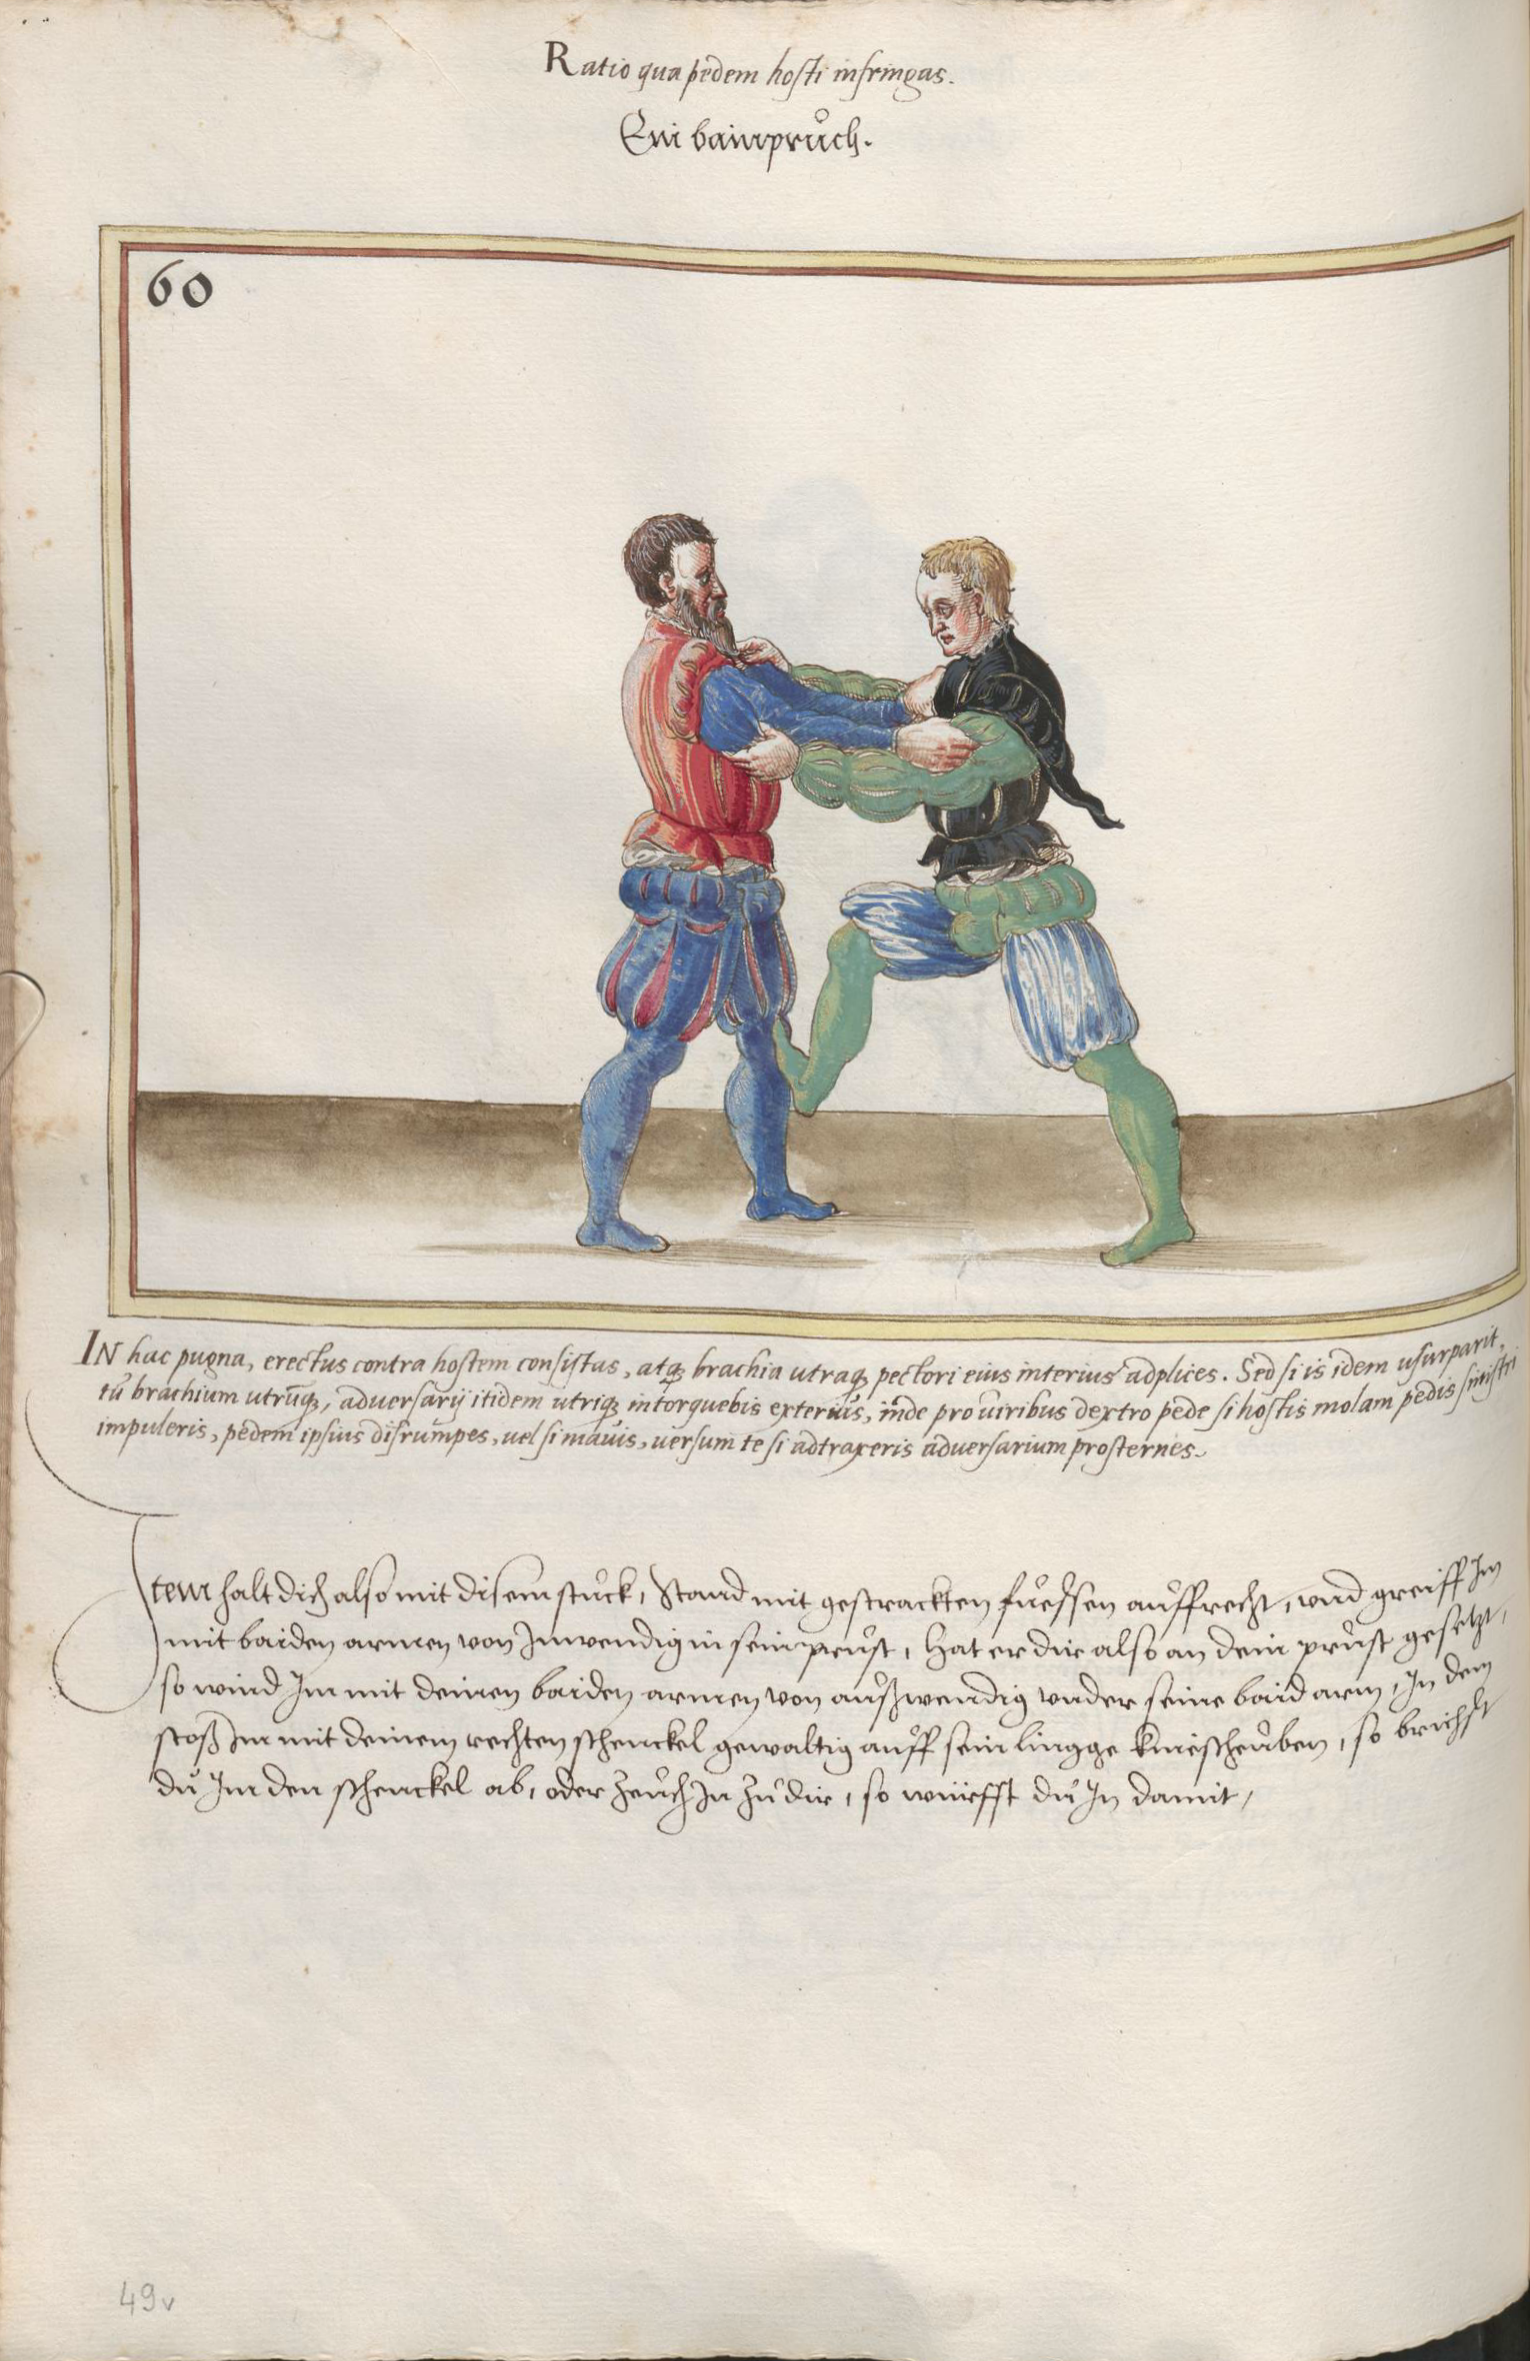 Ratio qua pedem hosti infringas.
Ein bainprůch.
60
IN hac pugna, erectus contra hostem consistas, atq; brachia utraq; pectori eius interius adplices. Sed si is idem usurparit,
tu brachium utrūq;, adversarij itidem utriq; intorquebis exterius, inde pro viribus dextro pede si hostis molam pedis sinistri
impuleris, pedem ipsius disrumpes, vel si mavis, versum te si adtraxeris adversarium prosternes.
Item halt dich also mit disem stuck, Stand mit gestrackten fuessen auffrecht, vnd greiff Im
mit baiden armen von Inwendig in sein prust, hat er dir also an dein prust gesetzt,
so wind Im mit deinen baiden armen von außwendig vnder seine baid arm, In dem
stoß Im mit deinem rechten schenckel gewaltig auff sein lingge kniescheuben, so brichst
du Im den schenckel ab, oder zeuch In zu dir, so würffst du In damit,
49v